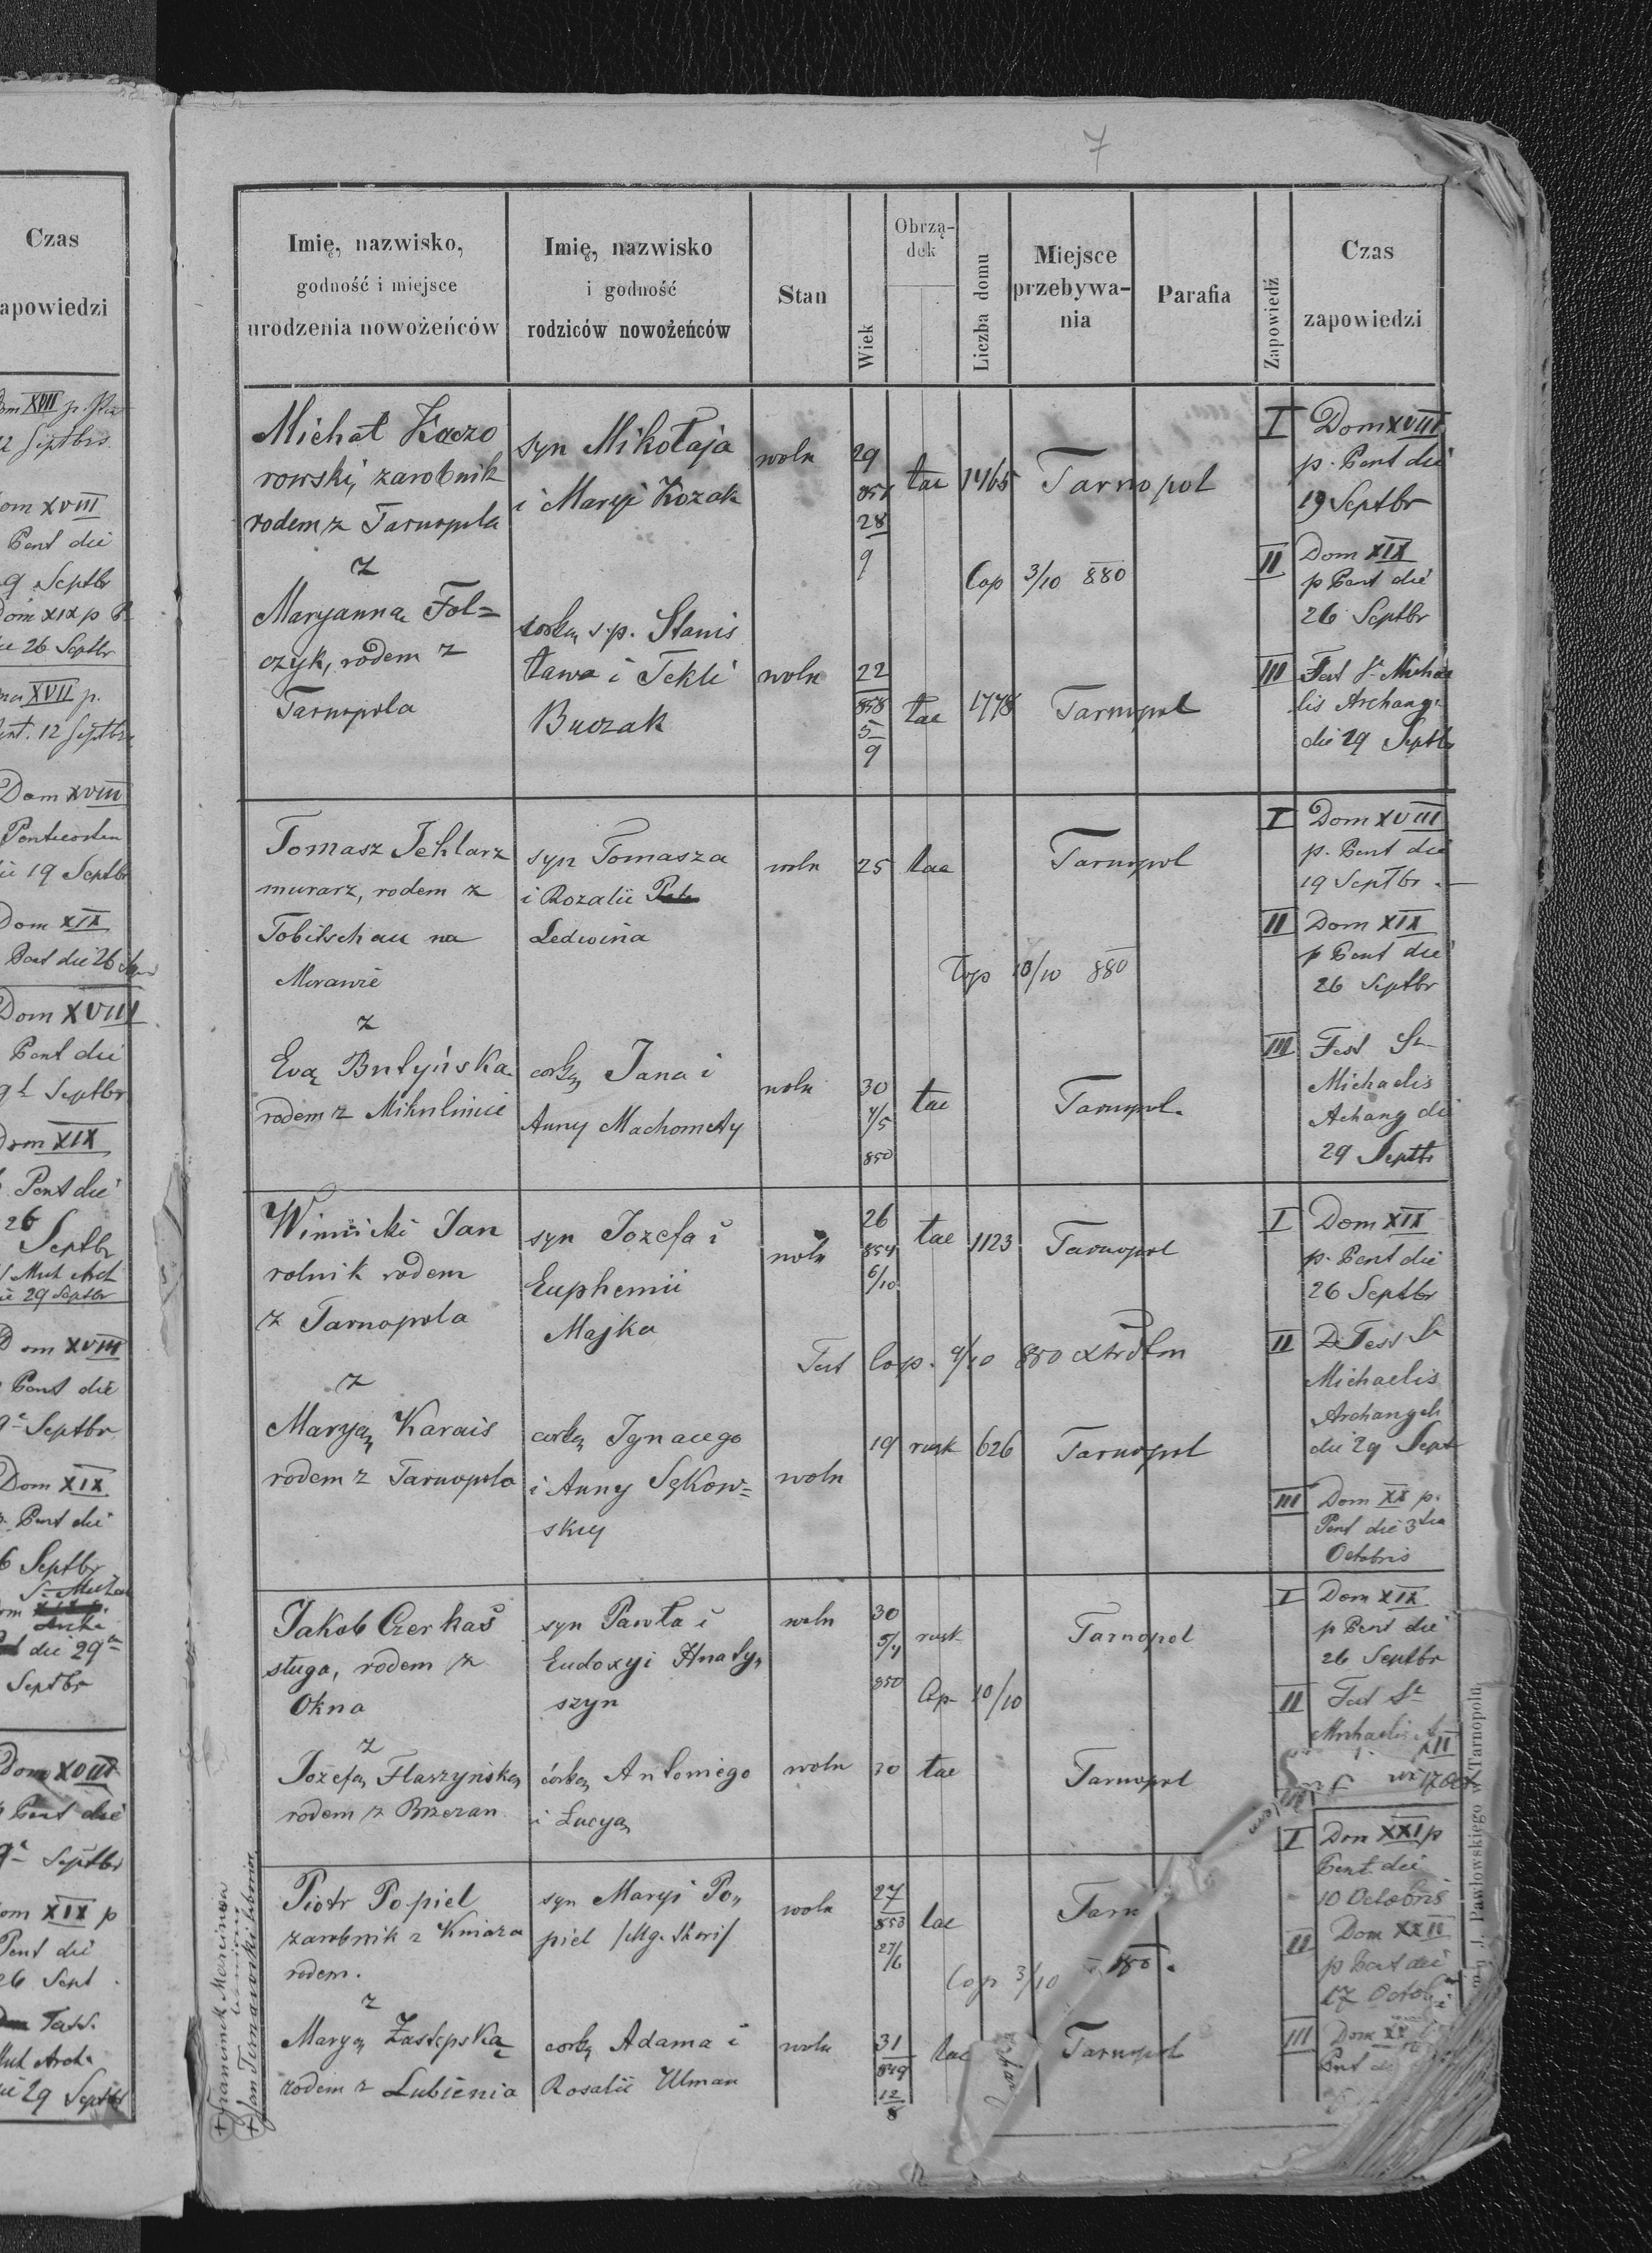 Czas
zapowiedzi
Dom XVII p.
12 Septbris
Dom XVIII
Pent die
19 Septbr
Dom XIX p P
die 26 Septbr
XVII p.
Pent. 12 Septbris
Dom XVIII
Pentecosten
die 19 Septbr
Dom XIX
Pent die 26
Dom XVIII
Pent die
Septbr
Dom XIX
Pent die
26
Septbr
Mich Arch
die 29 Septbr
Dom XVIII
Pent die
Septbr
Dom XIX
p. Pent die
26 Septbr
die 29
Septbr
Dom XVIII
p Pent die
Septbr
Dom XIX p
Pent die
26 Sept
Mich Arch
die 29 Septbr
7
Imię, nazwisko,
godność i miejsce
urodzenia nowożeńców
Imię, nazwisko
i godność
rodziców nowożeńców
Stan
Wiek
Obrzą-
dek
Liczba domu
Miejsce
przebywa-
nia
Parafia
Zapowiedź
Czas
zapowiedzi
Michał Kaczo
rowski, zarobnik
rodem z Tarnopola
z
Maryanna Fol=
czyk, rodem z
Tarnopola
syn Mikołaja
i Maryi Kozak
corką s.p. Stanis
ława i Tekli
Buczak
woln
29
851
28
9
łac
1465
Tarnopol
Cop 3/10 880
woln
22
858
5
9
łac
1778
Tarnopol
I Dom XVIII
p. Pent die
19 Septbr
II Dom XIX
p Pent die
26 Septbr
III Fest St Michae
lis Archang.
die 29 Septbr
Tomasz Jehlarz
murarz, rodem z
Tobitschau na
Morawie
z
Evą Butyńska
rodem z Mikuliniec
syn Tomasza
i Rozalii
Ledwina
corką Jana i
Anny Machomety
woln
25
łac
Tarnopol
Cop 10/10 880
woln
30
4/5
850
łac
Tarnopol
I Dom XVIII
p. Pent die
19 Septbr
II Dom XIX
p Pent die
26 Septbr
III Fest St
Michaelis
Achang die
29 Septbr
Winnicki Jan
rolnik rodem
z Tarnopola
z
Maryą Karais
rodem z Tarnopola
syn Jozefa i
Euphemii
Majka
corką Ignacego
i Anny Sękow=
skiej
woln
26
854
6/10
łac
1123
Tarnopol
Cop. 9/10 880
woln
19
rusk
626
Tarnopol
I Dom XIX
p. Pent die
26 Septbr
II Fest St
Michaelis
Archangeli
die 29 Septr
III Dom XX p.
Pent die 3tia
Octobris
Jakob Czerkas
sługa, rodem z
Okna
z
Jozefą Flaszyńską
rodem z Brzezan
syn Pawła i
Eudoxyi Hnaty„
szyn
córką Antoniego
i Łucyą
woln
30
5/4
850
rusk
Tarnopol
Cop 10/10
woln
30
łac
Tarnopol
I Dom XIX
p Pent die
26 Septbr
II Fest St
Michaelis
Piotr Popiel
zarobnik z Kniaza
rodem.
z
Maryą Zastępską
rodem z Lubienia
syn Maryi Po„
piel
corką Adama i
Rosalii Ulman
woln
27
853
27/6
łac
Tarn
Cop 3/10 880.
woln
31
849
12
8
łac
Tarnopol
I Dom XXI p
Pent. die
10 Octobris
II Dom XXII
p Pent die
17 Octobr
III Dom
Pent
+ Franciszek Marcinów
+ Jan Ternawski
J. Pawłowskiego w Tarnopolu.